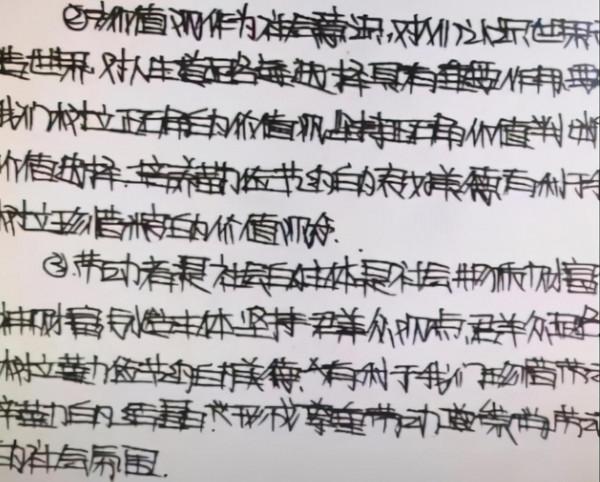 ②价值观作为社会意识,对人们认识世界
造世界,对人生道路的选择具有重要作用,要
我们树立正确的价值观,坚持正确价值判断
价值选择,培养勤俭节约的良好美德,有利于
树立珍惜粮食的价值观念.
③.劳动者是社会的主体是社会物质财富
神财富创造主体,坚持群众观点,群众
树立勤俭节约的美德,有利于我们珍惜劳动
辛勤的结果,形成尊重劳动,崇尚劳动
的社会氛围.